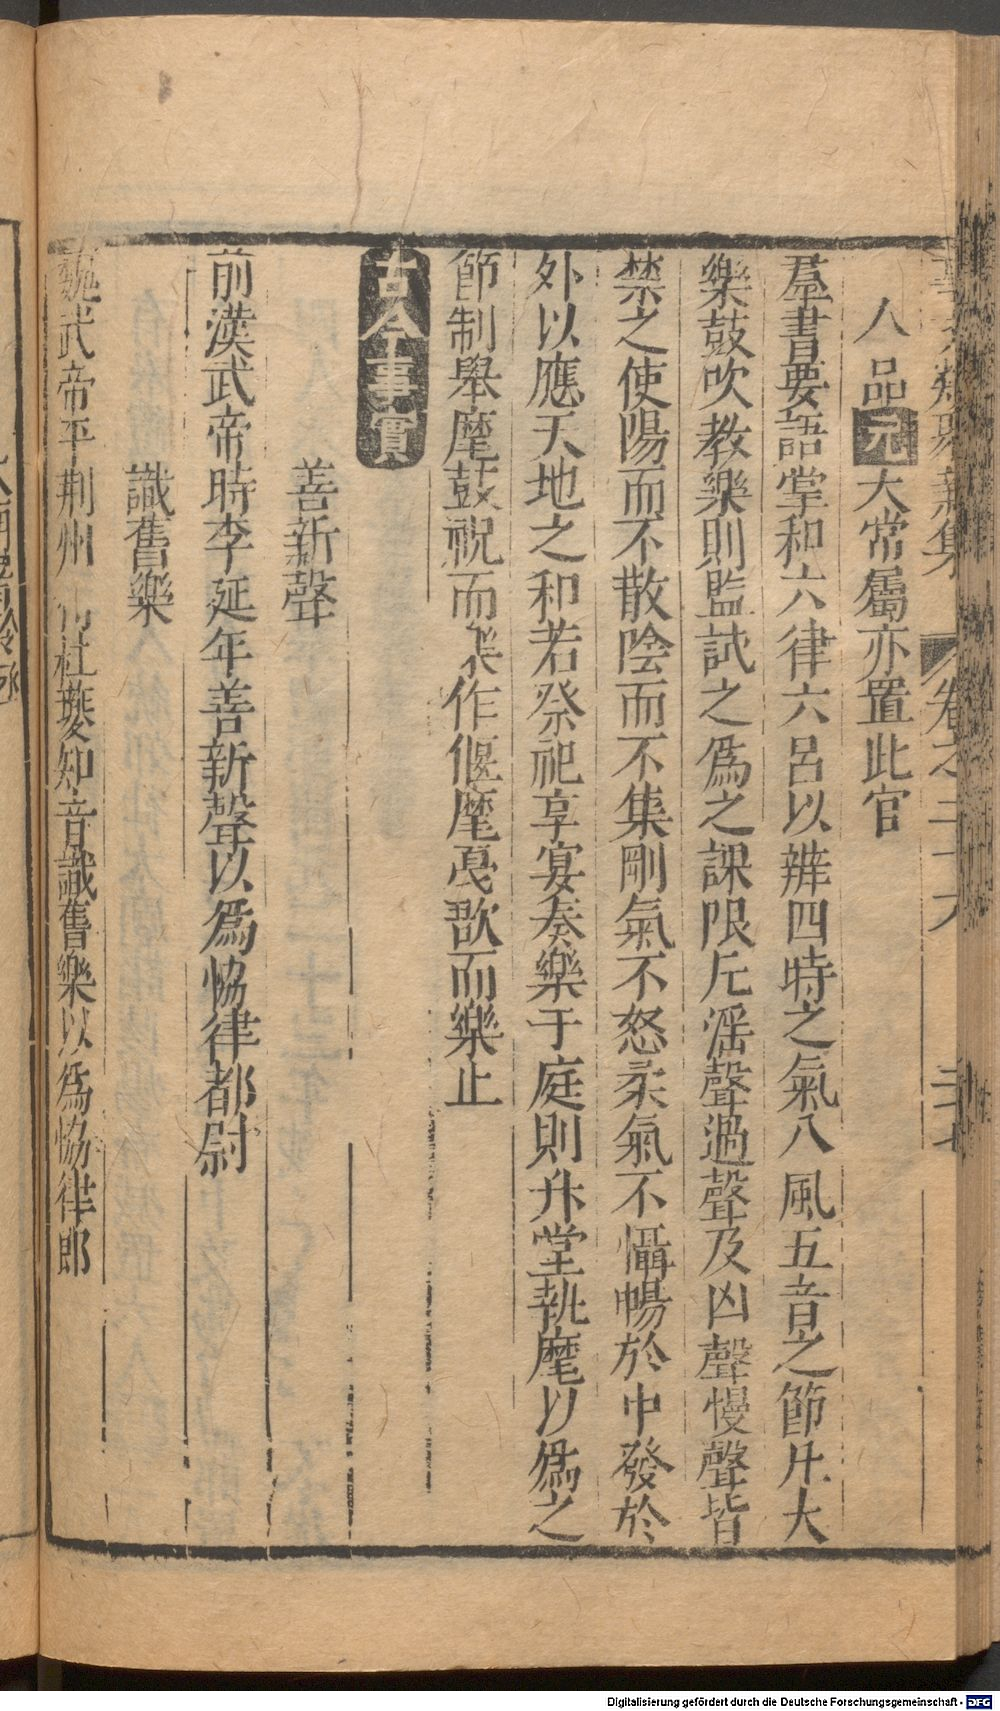 人品元大常屬亦置此官
羣書要語掌和六律六呂以辨四時之氣八風五音之節凡大
樂鼓吹教樂則監試之爲之課限凡淫聲過聲及凶聲慢聲皆
禁之使陽而不散陰而不集剛氣不怒柔氣不懾暢於中發於
外以應天地之和若祭祀享宴奏樂于庭則升堂執麾以爲之
節制舉麾鼓柷而樂作偃麾戞敔而樂止
古今事實
善新聲
前漢武帝時李延年善新聲以爲恊律都尉
識舊樂
魏武帝平荆州杜夔知音識舊樂以爲恊律郎
卷之二十六
二十七
Digitalisierung gefördert durch die Deutsche Forschungsgemeinschaft - DFG